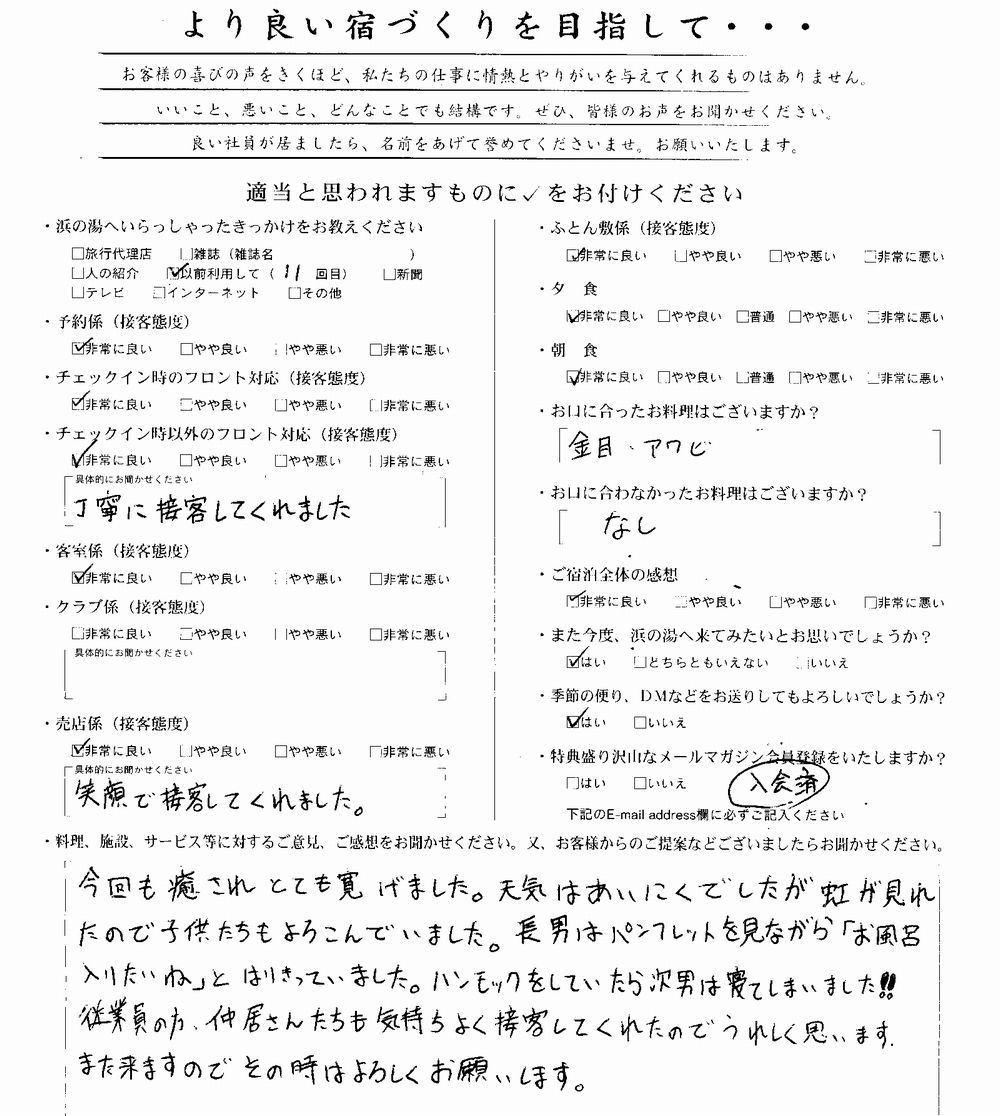 より良い宿づくりを目指して・・・
お客様の喜びの声をきくほど、私たちの仕事に情熱とやりがいを与えてくれるものはありません。
いいこと、悪いこと、どんなことでも結構です。ぜひ、皆様のお声をお聞かせください。
良い社員が居ましたら、名前をあげて誉めてくださいませ。お願いいたします。
適当と思われますものに✓をお付けください
・浜の湯へいらっしゃったきっかけをお教えください
□旅行代理店 □雑誌（雑誌名 ）
□人の紹介 ☑以前利用して（ 11 回目） □新聞
□テレビ □インターネット □その他
・予約係（接客態度）
☑非常に良い □やや良い □やや悪い □非常に悪い
・チェックイン時のフロント対応（接客態度）
☑非常に良い □やや良い □やや悪い □非常に悪い
・チェックイン時以外のフロント対応（接客態度）
☑非常に良い □やや良い □やや悪い □非常に悪い
具体的にお聞かせください
丁寧に接客してくれました
・客室係（接客態度）
☑非常に良い □やや良い □やや悪い □非常に悪い
・クラブ係（接客態度）
□非常に良い □やや良い □やや悪い □非常に悪い
具体的にお聞かせください
・売店係（接客態度）
☑非常に良い □やや良い □やや悪い □非常に悪い
具体的にお聞かせください
笑顔で接客してくれました。
・ふとん敷係（接客態度）
☑非常に良い □やや良い □やや悪い □非常に悪い
・夕 食
☑非常に良い □やや良い □普通 □やや悪い □非常に悪い
・朝 食
☑非常に良い □やや良い □普通 □やや悪い □非常に悪い
・お口に合ったお料理はございますか？
金目・アワビ
・お口に合わなかったお料理はございますか？
なし
・ご宿泊全体の感想
☑非常に良い □やや良い □やや悪い □非常に悪い
・また今度、浜の湯へ来てみたいとお思いでしょうか？
☑はい □どちらともいえない □いいえ
・季節の便り、DMなどをお送りしてもよろしいでしょうか？
☑はい □いいえ
・特典盛り沢山なメールマガジン会員登録をいたしますか？
□はい □いいえ 入会済
下記のE-mail address欄に必ずご記入ください
・料理、施設、サービス等に対するご意見、ご感想をお聞かせください。又、お客様からのご提案などございましたらお聞かせください。
今回も癒されとても寛げました。天気はあいにくでしたが虹が見れ
たので子供たちもよろこんでいました。長男はパンフレットを見ながら「お風呂
入りたいね」とはりきっていました。ハンモックをしていたら次男は寝てしまいました!!
従業員の方、仲居さんたちも気持ちよく接客してくれたのでうれしく思います。
また来ますのでその時はよろしくお願いします。